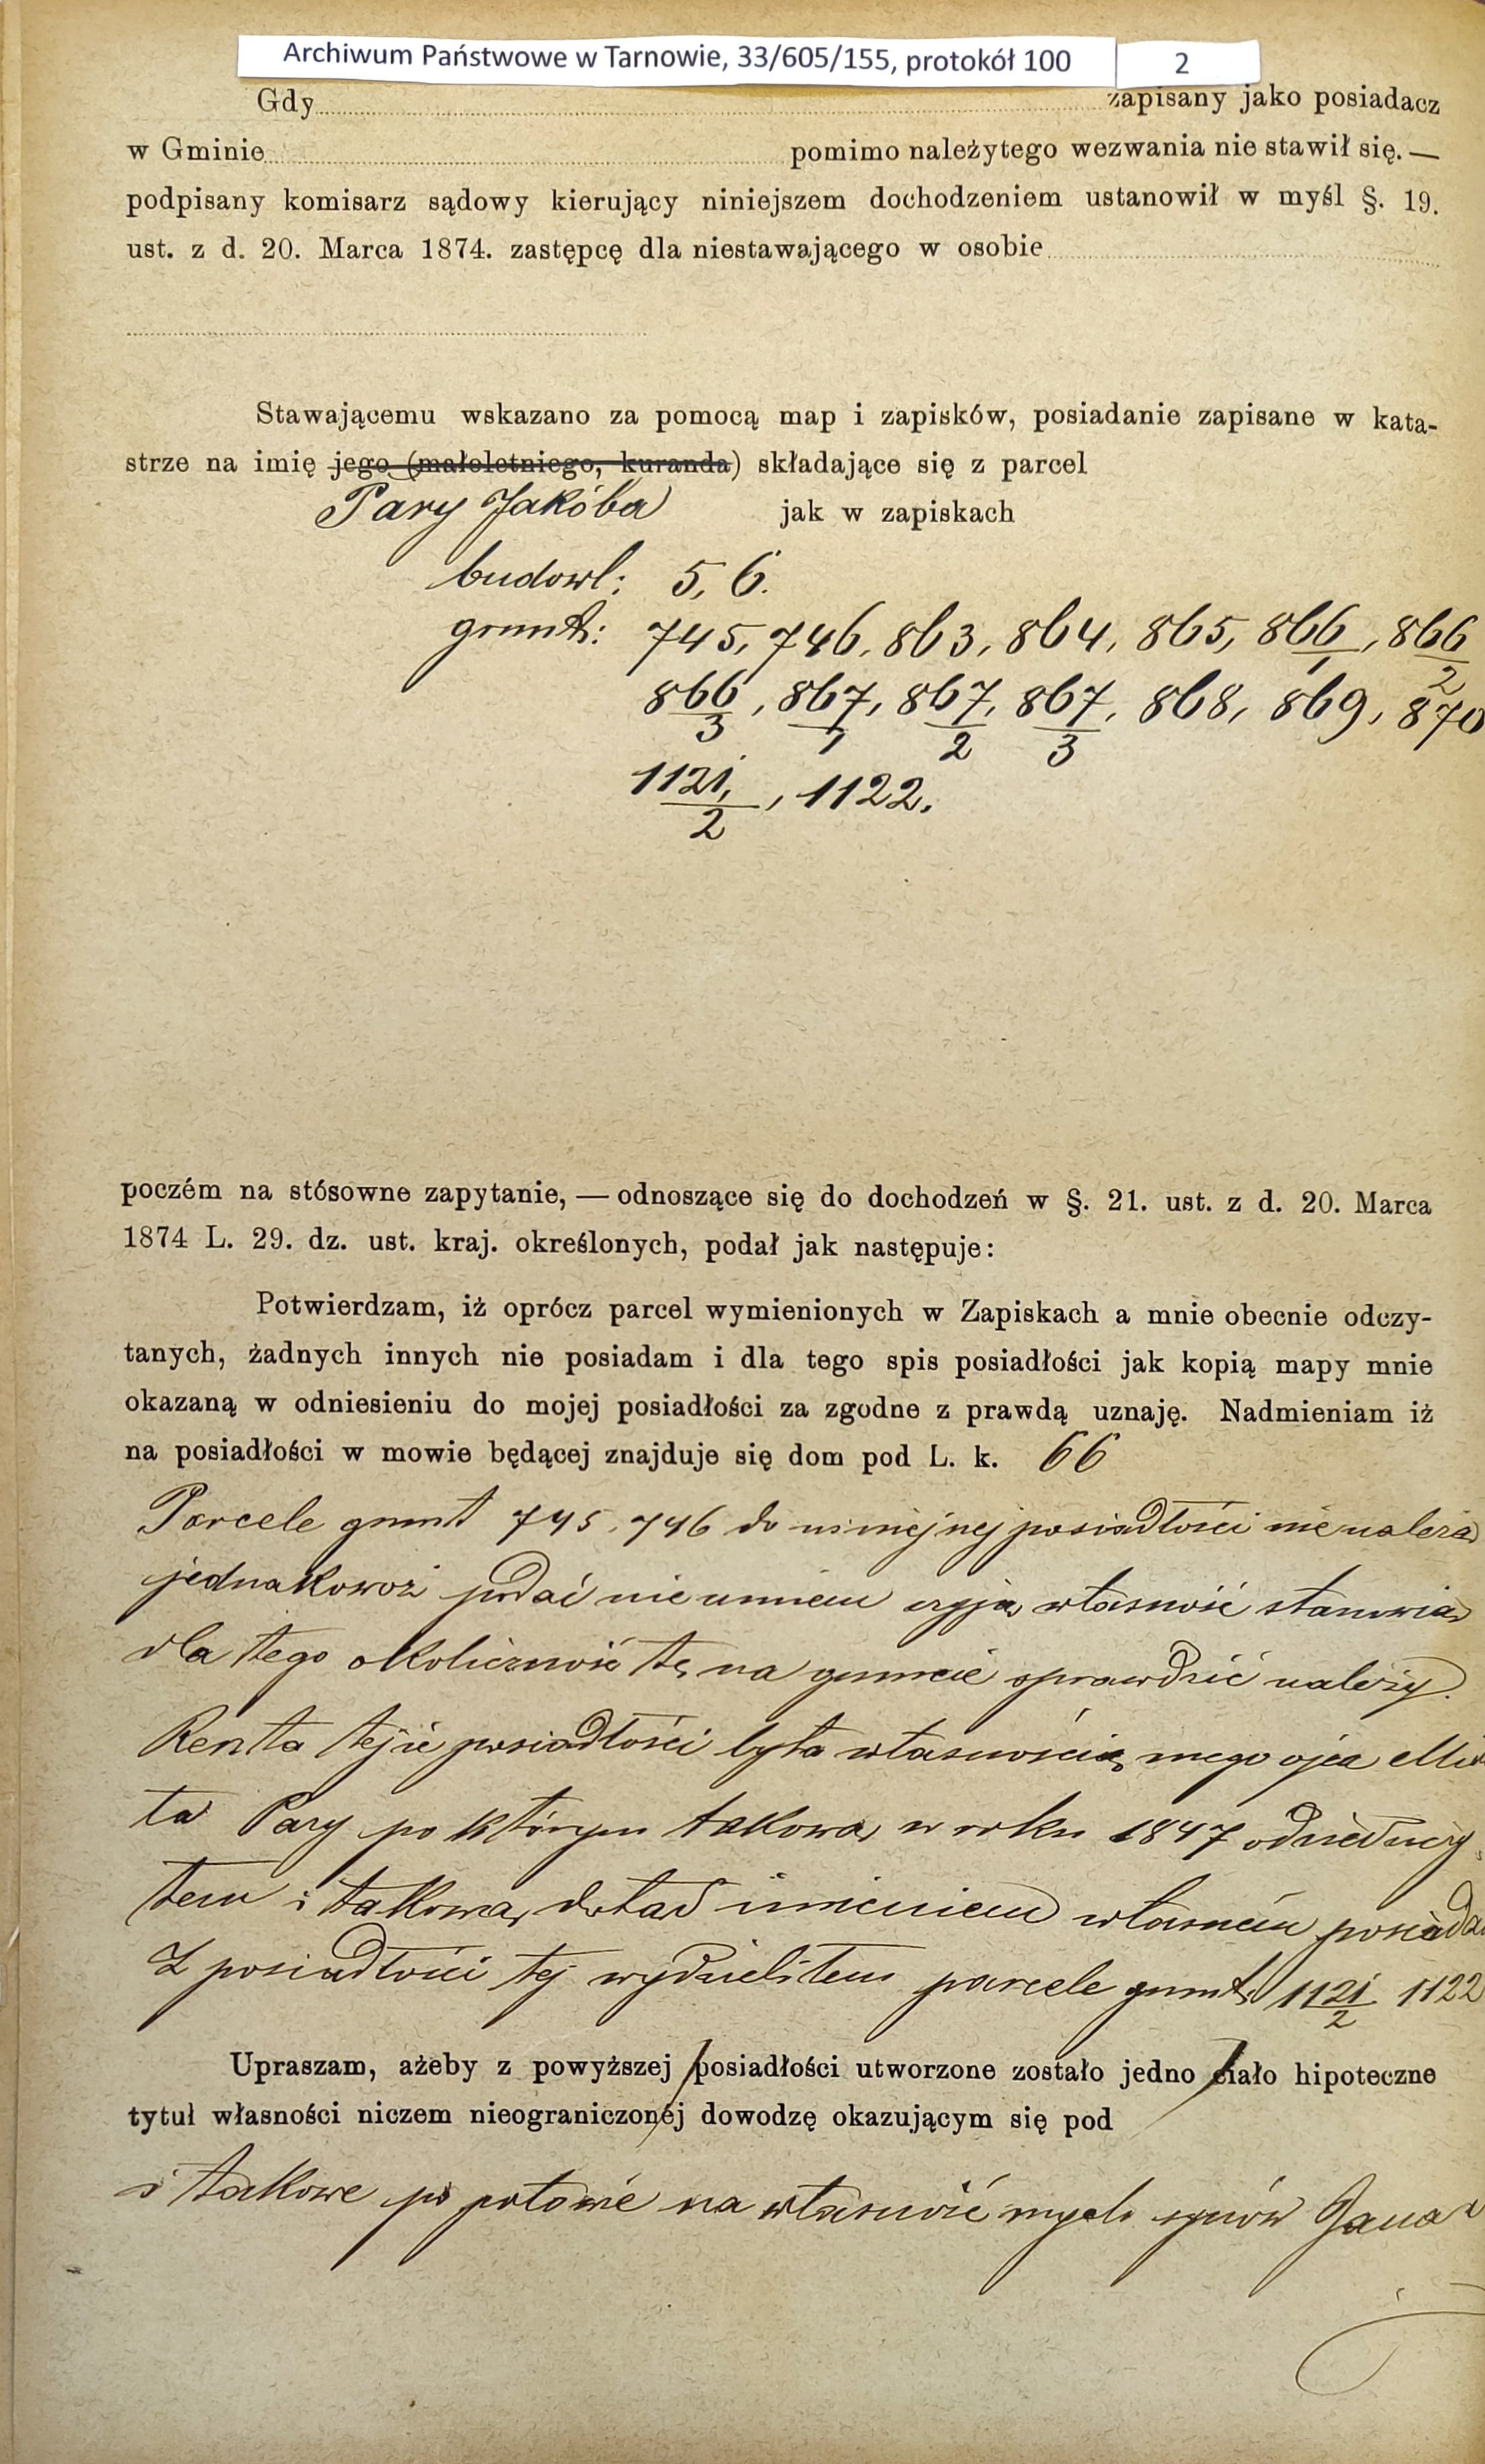 Archiwum Państwowe w Tarnowie, 33/605/155, protokół 100 2
Gdy zapisany jako posiadacz
w Gminie pomimo należytego wezwania nie stawił się. —
podpisany komisarz sądowy kierujący niniejszem dochodzeniem ustanowił w myśl §. 19.
ust. z d. 20. Marca 1874. zastępcę dla niestawającego w osobie
Stawającemu wskazano za pomocą map i zapisków, posiadanie zapisane w kata-
strze na imię jego (małoletniego, kuranda) składające się z parcel
Pary Jakóba jak w zapiskach
budowl: 5, 6.
grunt: 745, 746, 863, 864, 865, 866/1, 866/2
866/3, 867/1, 867/2, 867/3, 868, 869, 870
1121/2, 1122.
poczém na stósowne zapytanie, — odnoszące się do dochodzeń w §. 21. ust. z d. 20. Marca
1874 L. 29. dz. ust. kraj. określonych, podał jak następuje:
Potwierdzam, iż oprócz parcel wymienionych w Zapiskach a mnie obecnie odczy-
tanych, żadnych innych nie posiadam i dla tego spis posiadłości jak kopią mapy mnie
okazaną w odniesieniu do mojej posiadłości za zgodne z prawdą uznaję. Nadmieniam iż
na posiadłości w mowie będącej znajduje się dom pod L. k. 66
Parcele grunt 745, 746 do niniejnej posiadłości nie należą
jednakowoż podać nie umiem czyją własność stanowią
dla tego okoliczność tę na gruncie sprawdzić należy.
Reszta tejże posiadłości była własnością mego ojca
ta Pary po którym takową w roku 1847 odziedziczy
łem i takową dotąd imieniem własnem posiada
Z posiadłości tej wydzieliłem parcele grunt: 1121/2 1122
Upraszam, ażeby z powyższej posiadłości utworzone zostało jedno ciało hipoteczne
tytuł własności niczem nieograniczonéj dowodzę okazującym się pod
i takowe po połowie na własność mych synów Jana